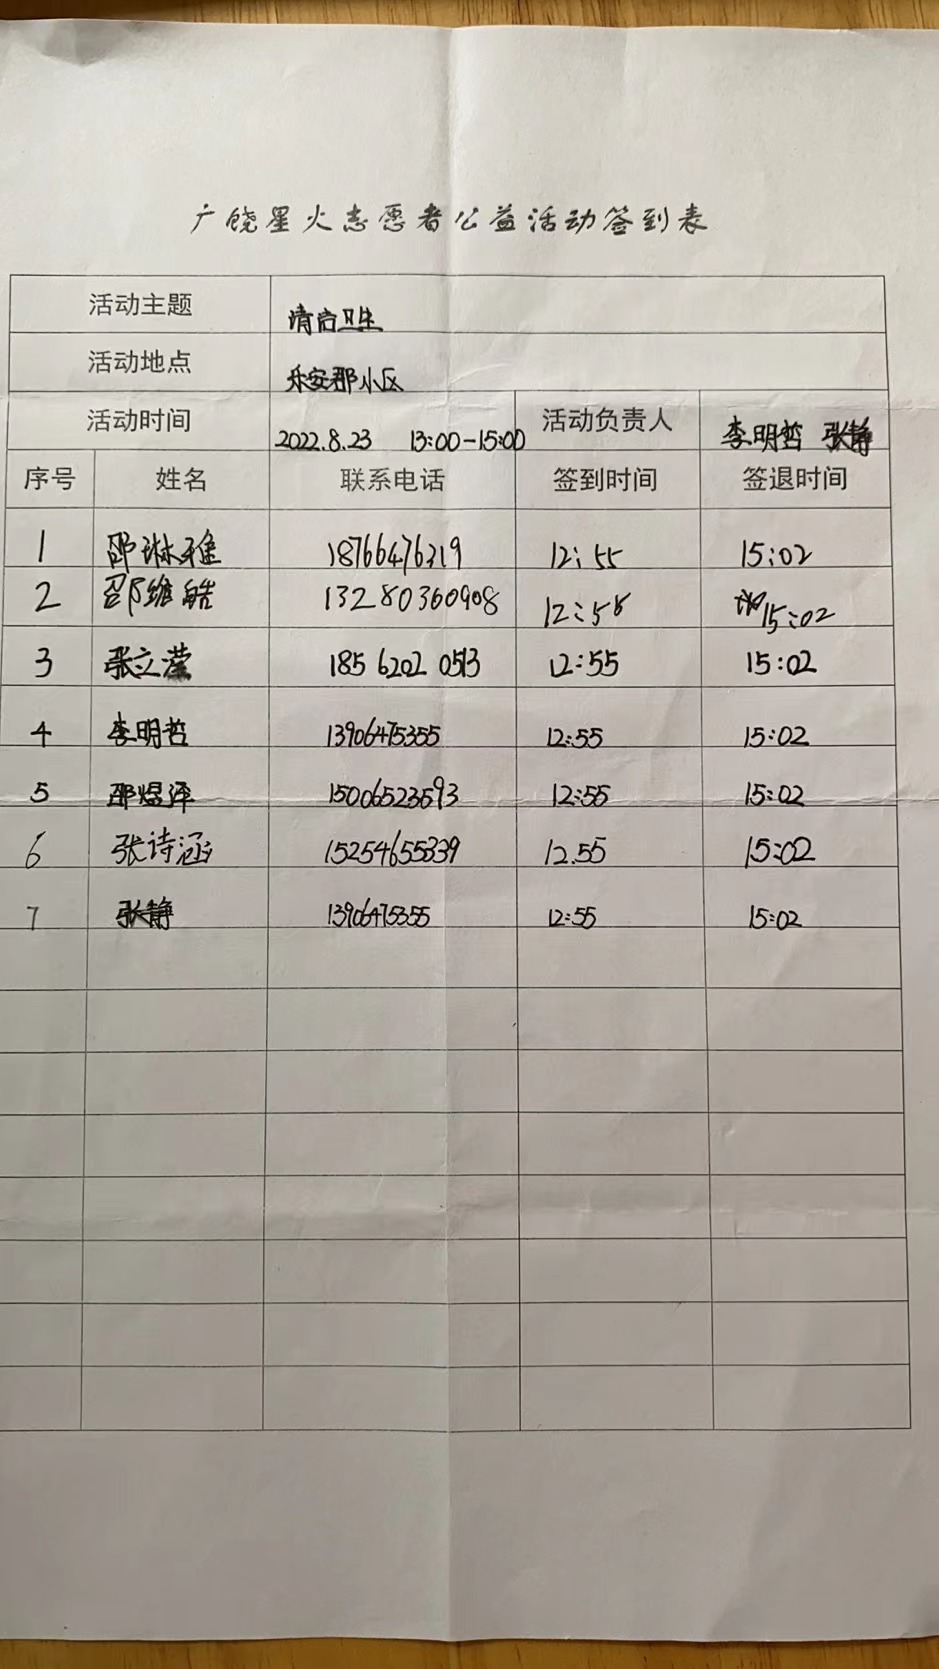 广饶星火志愿者公益活动签到表
活动主题 清扫卫生
活动地点 乐安郡小区
活动时间 2022.8.23 13:00-15:00 活动负责人 李明哲 张静
序号 姓名 联系电话 签到时间 签退时间
1 邵琳雅 18766476219 12:55 15:02
2 邵维皓 13280360908 12:55 15:02
3 张立滢 185 6202 0513 12:55 15:02
4 李明哲 13906475355 12:55 15:02
5 邵煜泽 15006523693 12:55 15:02
6 张诗涵 15254655339 12.55 15:02
7 张静 13906475355 12:55 15:02